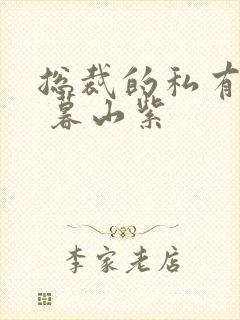 总裁的私有
暮山紫
李家老店